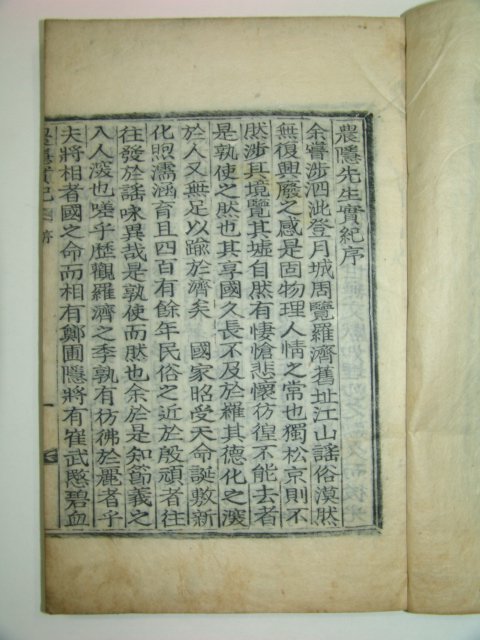 農隱先生實紀序
余嘗涉泗沘登月城周覽羅濟舊址江山謠俗漠然
無復興廢之感是固物理人情之常也獨松京則不
然涉其境覽其墟自然有悽愴悲懷彷徨不能去者
是孰使之然也其享國久長不及於羅其德化之深
於人又無足以踰於濟矣 國家昭受天命誕敷新
化照濡涵育且四百有餘年民俗之近於殷頑者往
往發於謠咏異哉是孰使而然也余於是知節義之
入人深也嗟乎歷觀羅濟之季孰有彷彿於麗者乎
夫將相者國之命而相有鄭圃隱將有崔武愍碧血
農隱實紀 序 一